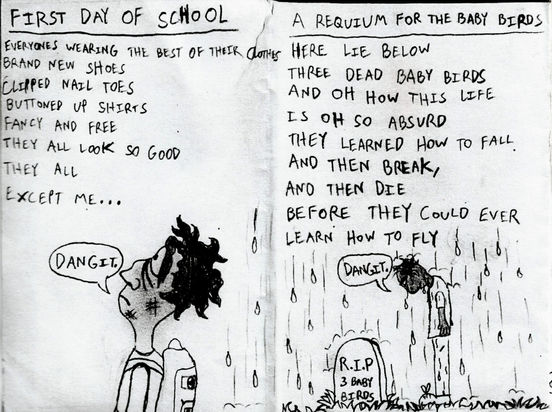 FIRST DAY OF SCHOOL
EVERYONES WEARING THE BEST OF THEIR CLOTHES
BRAND NEW SHOES
CLIPPED NAIL TOES
BUTTONED UP SHIRTS
FANCY AND FREE
THEY ALL LOOK SO GOOD
THEY ALL
EXCEPT ME...
DANGIT.
A REQUIUM FOR THE BABY BIRDS
HERE LIE BELOW
THREE DEAD BABY BIRDS
AND OH HOW THIS LIFE
IS OH SO ABSURD
THEY LEARNED HOW TO FALL
AND THEN BREAK,
AND THEN DIE
BEFORE THEY COULD EVER
LEARN HOW TO FLY
DANGIT.
R.I.P
3 BABY
BIRDS